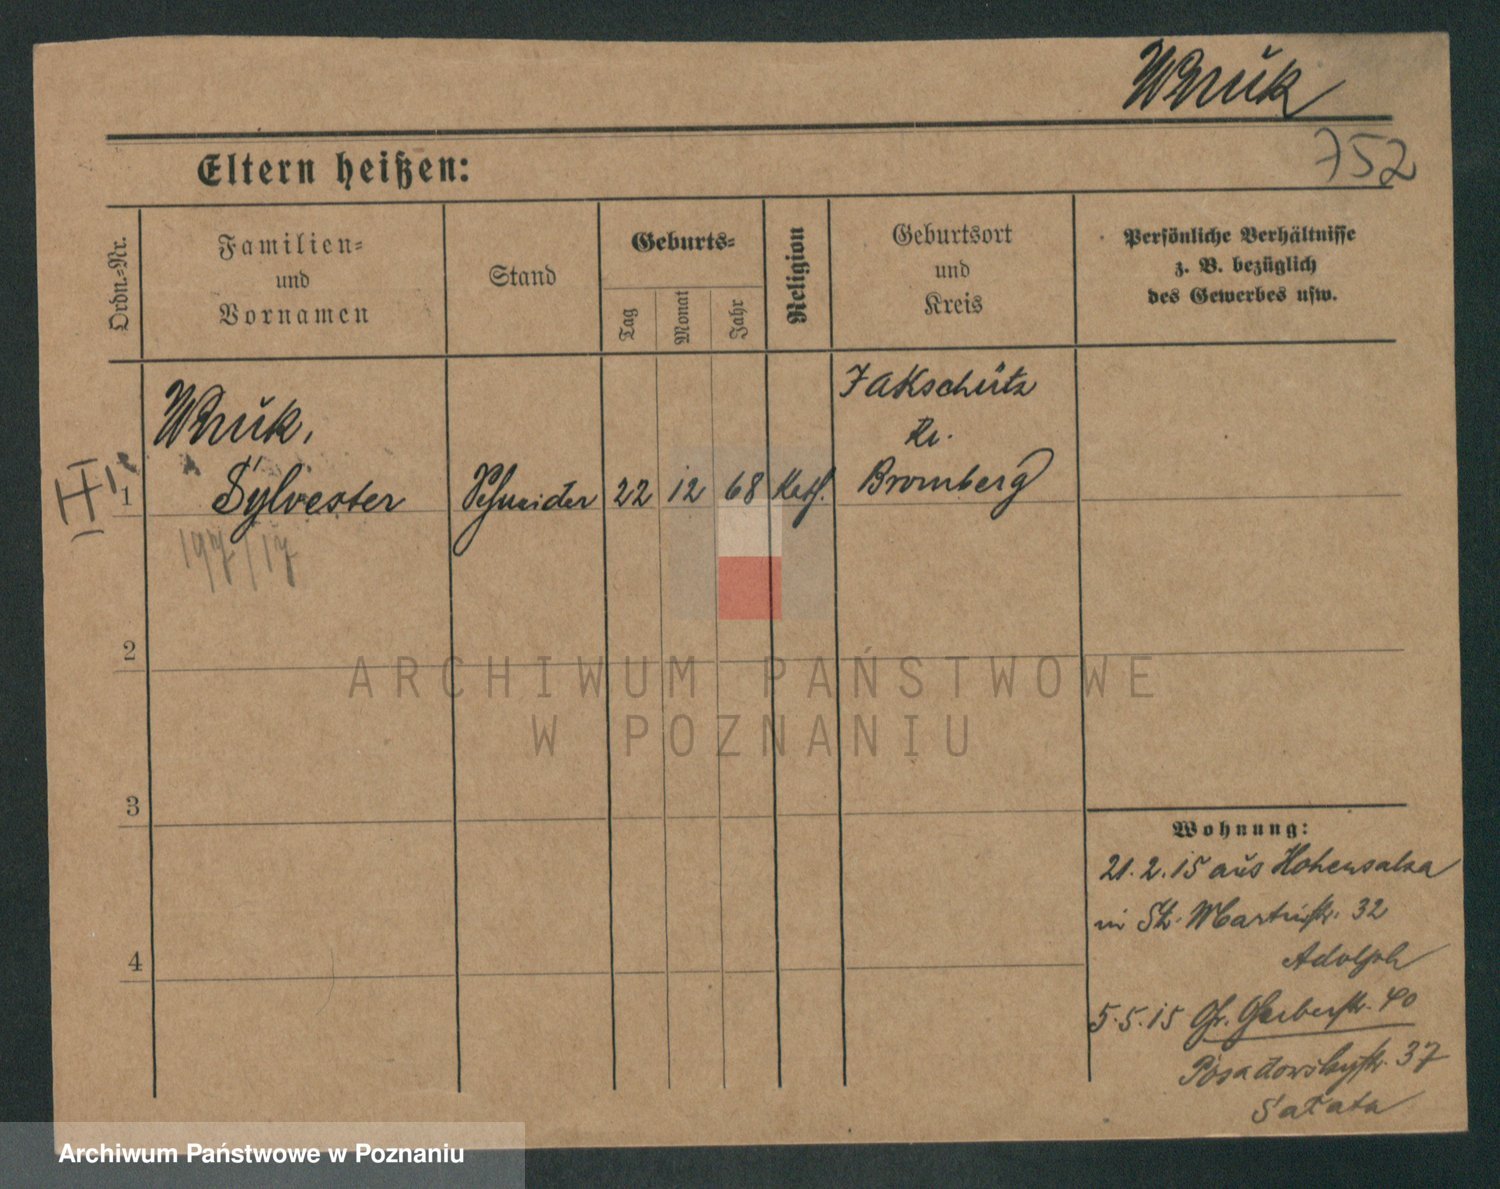 Wruk
752
Eltern heißen:
Ordn.-Nr.
Familien- und Vornamen
Stand
Geburts-
Tag
Monat
Jahr
Religion
Geburtsort und Kreis
Persönliche Verhältnisse z. B. bezüglich des Gewerbes usw.
1
Wruk,
Sylvester
Schneider
22
12
68
Kath.
Jakschütz
Kr.
Bromberg
197/17
2
3
4
Wohnung:
21.2.15 aus Hohensalza
in St. Martinstr. 32
Adolph
5.5.15 Gr. Gerberstr. 40
Posadowskystr. 37
Sałata
ARCHIWUM PAŃSTWOWE
W POZNANIU
Archiwum Państwowe w Poznaniu